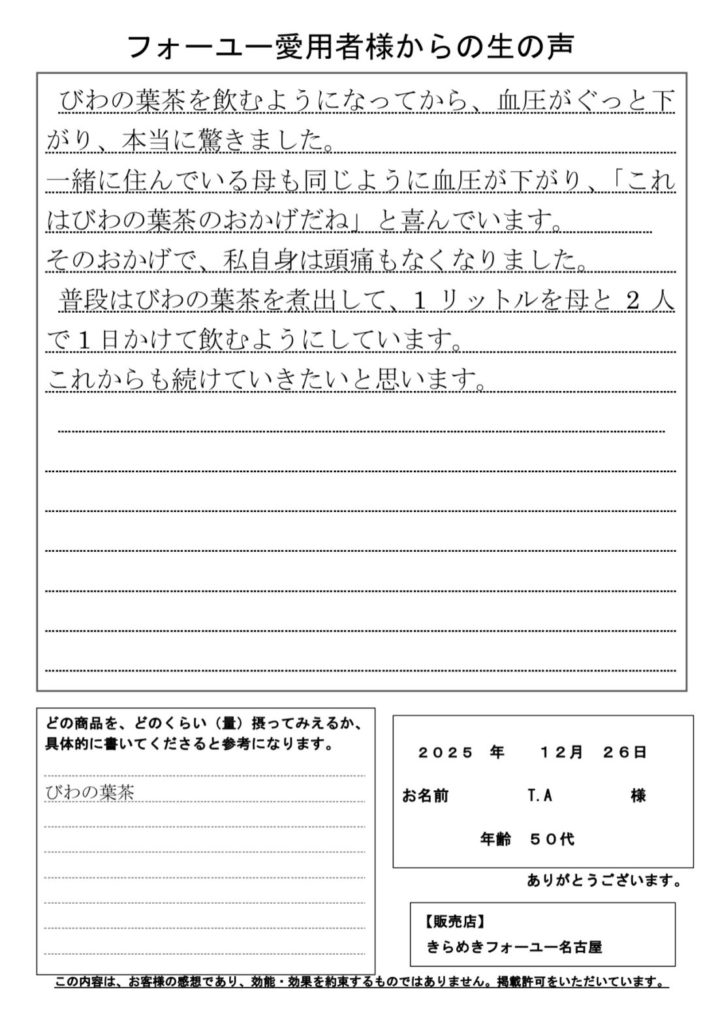 フォーユー愛用者様からの生の声
びわの葉茶を飲むようになってから、血圧がぐっと下
がり、本当に驚きました。
一緒に住んでいる母も同じように血圧が下がり、「これ
はびわの葉茶のおかげだね」と喜んでいます。
そのおかげで、私自身は頭痛もなくなりました。
普段はびわの葉茶を煮出して、1 リットルを母と 2 人
で1日かけて飲むようにしています。
これからも続けていきたいと思います。
どの商品を、どのくらい（量）摂ってみえるか、
具体的に書いてくださると参考になります。
びわの葉茶
２０２５ 年 １２月 ２６日
お名前 T.A 様
年齢 ５０代
ありがとうございます。
【販売店】
きらめきフォーユー名古屋
この内容は、お客様の感想であり、効能・効果を約束するものではありません。掲載許可をいただいています。